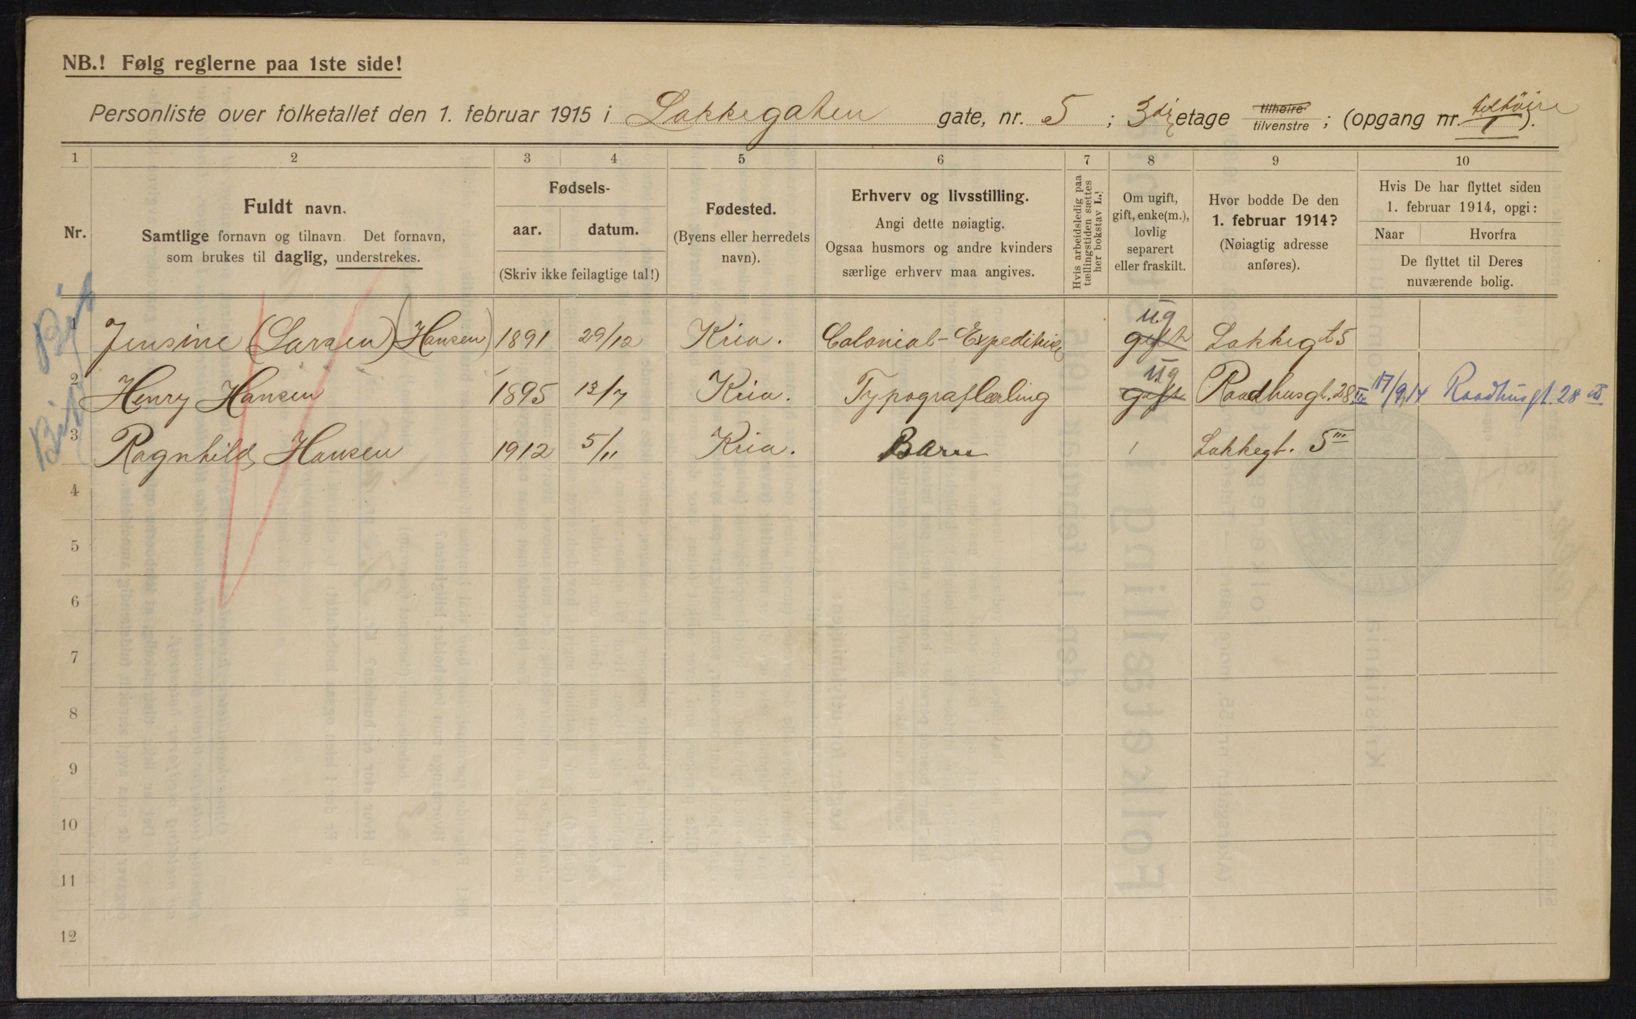 NB.! Følg reglerne paa 1ste side!
Personliste over folketallet den 1. februar 1915 i Lakkegaten gate, nr. 5 ; 3die etage tilhøire tilvenstre ; (opgang nr. 1 ).
1 2 3 4 5 6 7 8 9 10
Nr.
Fuldt navn.
Samtlige fornavn og tilnavn. Det fornavn,
som brukes til daglig, understrekes.
Fødsels-
aar. datum.
(Skriv ikke feilagtige tal!)
Fødested.
(Byens eller herredets
navn).
Erhverv og livsstilling.
Angi dette nøiagtig.
Ogsaa husmors og andre kvinders
særlige erhverv maa angives.
Hvis arbeidsledig paa
tællingstiden sættes
her bokstav L.!
Om ugift,
gift, enke(m.),
lovlig
separert
eller fraskilt.
Hvor bodde De den
1. februar 1914?
(Nøiagtig adresse
anføres).
Hvis De har flyttet siden
1. februar 1914, opgi:
Naar Hvorfra
De flyttet til Deres
nuværende bolig.
1 Jensine (Larsen) (Hansen) 1891 29/12 Kria. Colonial-Expeditrice gift ug Lakkegt 5
2 Henry Hansen 1895 13/7 Kria. Typograflærling gift ug Raadhusgt. 28 III 17/9 14 Raadhusgt. 28 III
3 Ragnhild Hansen 1912 5/11 Kria. Barn / Lakkegt. 5 III
4
5
6
7
8
9
10
11
12